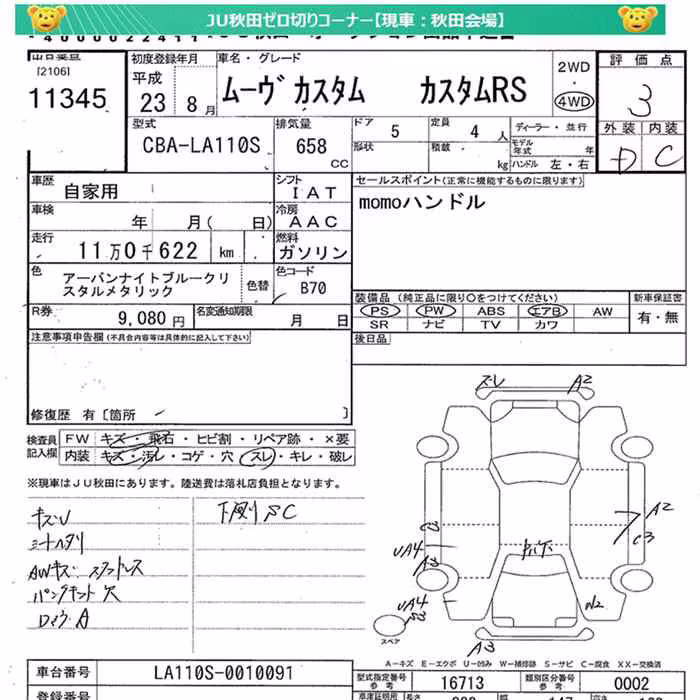 JU秋田ゼロ切りコーナー【現車：秋田会場】
[2106]
11345
初度登録年月
平成
23 8月
車名・グレード
ムーヴ カスタム カスタムRS
2WD
4WD
評価点
3
外装 内装
D C
型式
CBA-LA110S
排気量
658
CC
ドア
5
形状
定員
4 人
積載
kg
ディーラー・並行
モデル
年式 年
ハンドル 左・右
車歴
自家用
シフト
IAT
車検
年 月( 日)
冷房
AAC
走行
11万0千622 km
燃料
ガソリン
色
アーバンナイトブルークリ
スタルメタリック
色替
色コード
B70
R券
9,080 円
名変通知期限
月 日
セールスポイント(正常に機能するものに限ります)
momoハンドル
装備品 (純正品に限り○をつけてください)
PS PW ABS エアB AW
SR ナビ TV カワ
新車保証書
有・無
後日品
注意事項申告欄(不具合内容等は具体的に記入して下さい)
修復歴 有 [箇所 ]
検査員
記入欄
FW キズ・飛石・ヒビ割・リペア跡・×要
内装 キズ・汚レ・コゲ・穴・スレ・キレ・破レ
※現車はJU秋田にあります。陸送費は落札店負担となります。
キズU
シートヘタリ
AWキズ・スタットレス
パンクキット穴
ロッカ A
下廻りSC
スレ
A2
A2
C3
UA4
A3
UA4
W2
A3
スペア
A－キズ E－エクボ U－凹み W－補修跡 S－サビ C－腐食 XX－交換済
車台番号
LA110S-0010091
型式指定番号
参考
16713
類別区分番号
参考
0002
登録番号